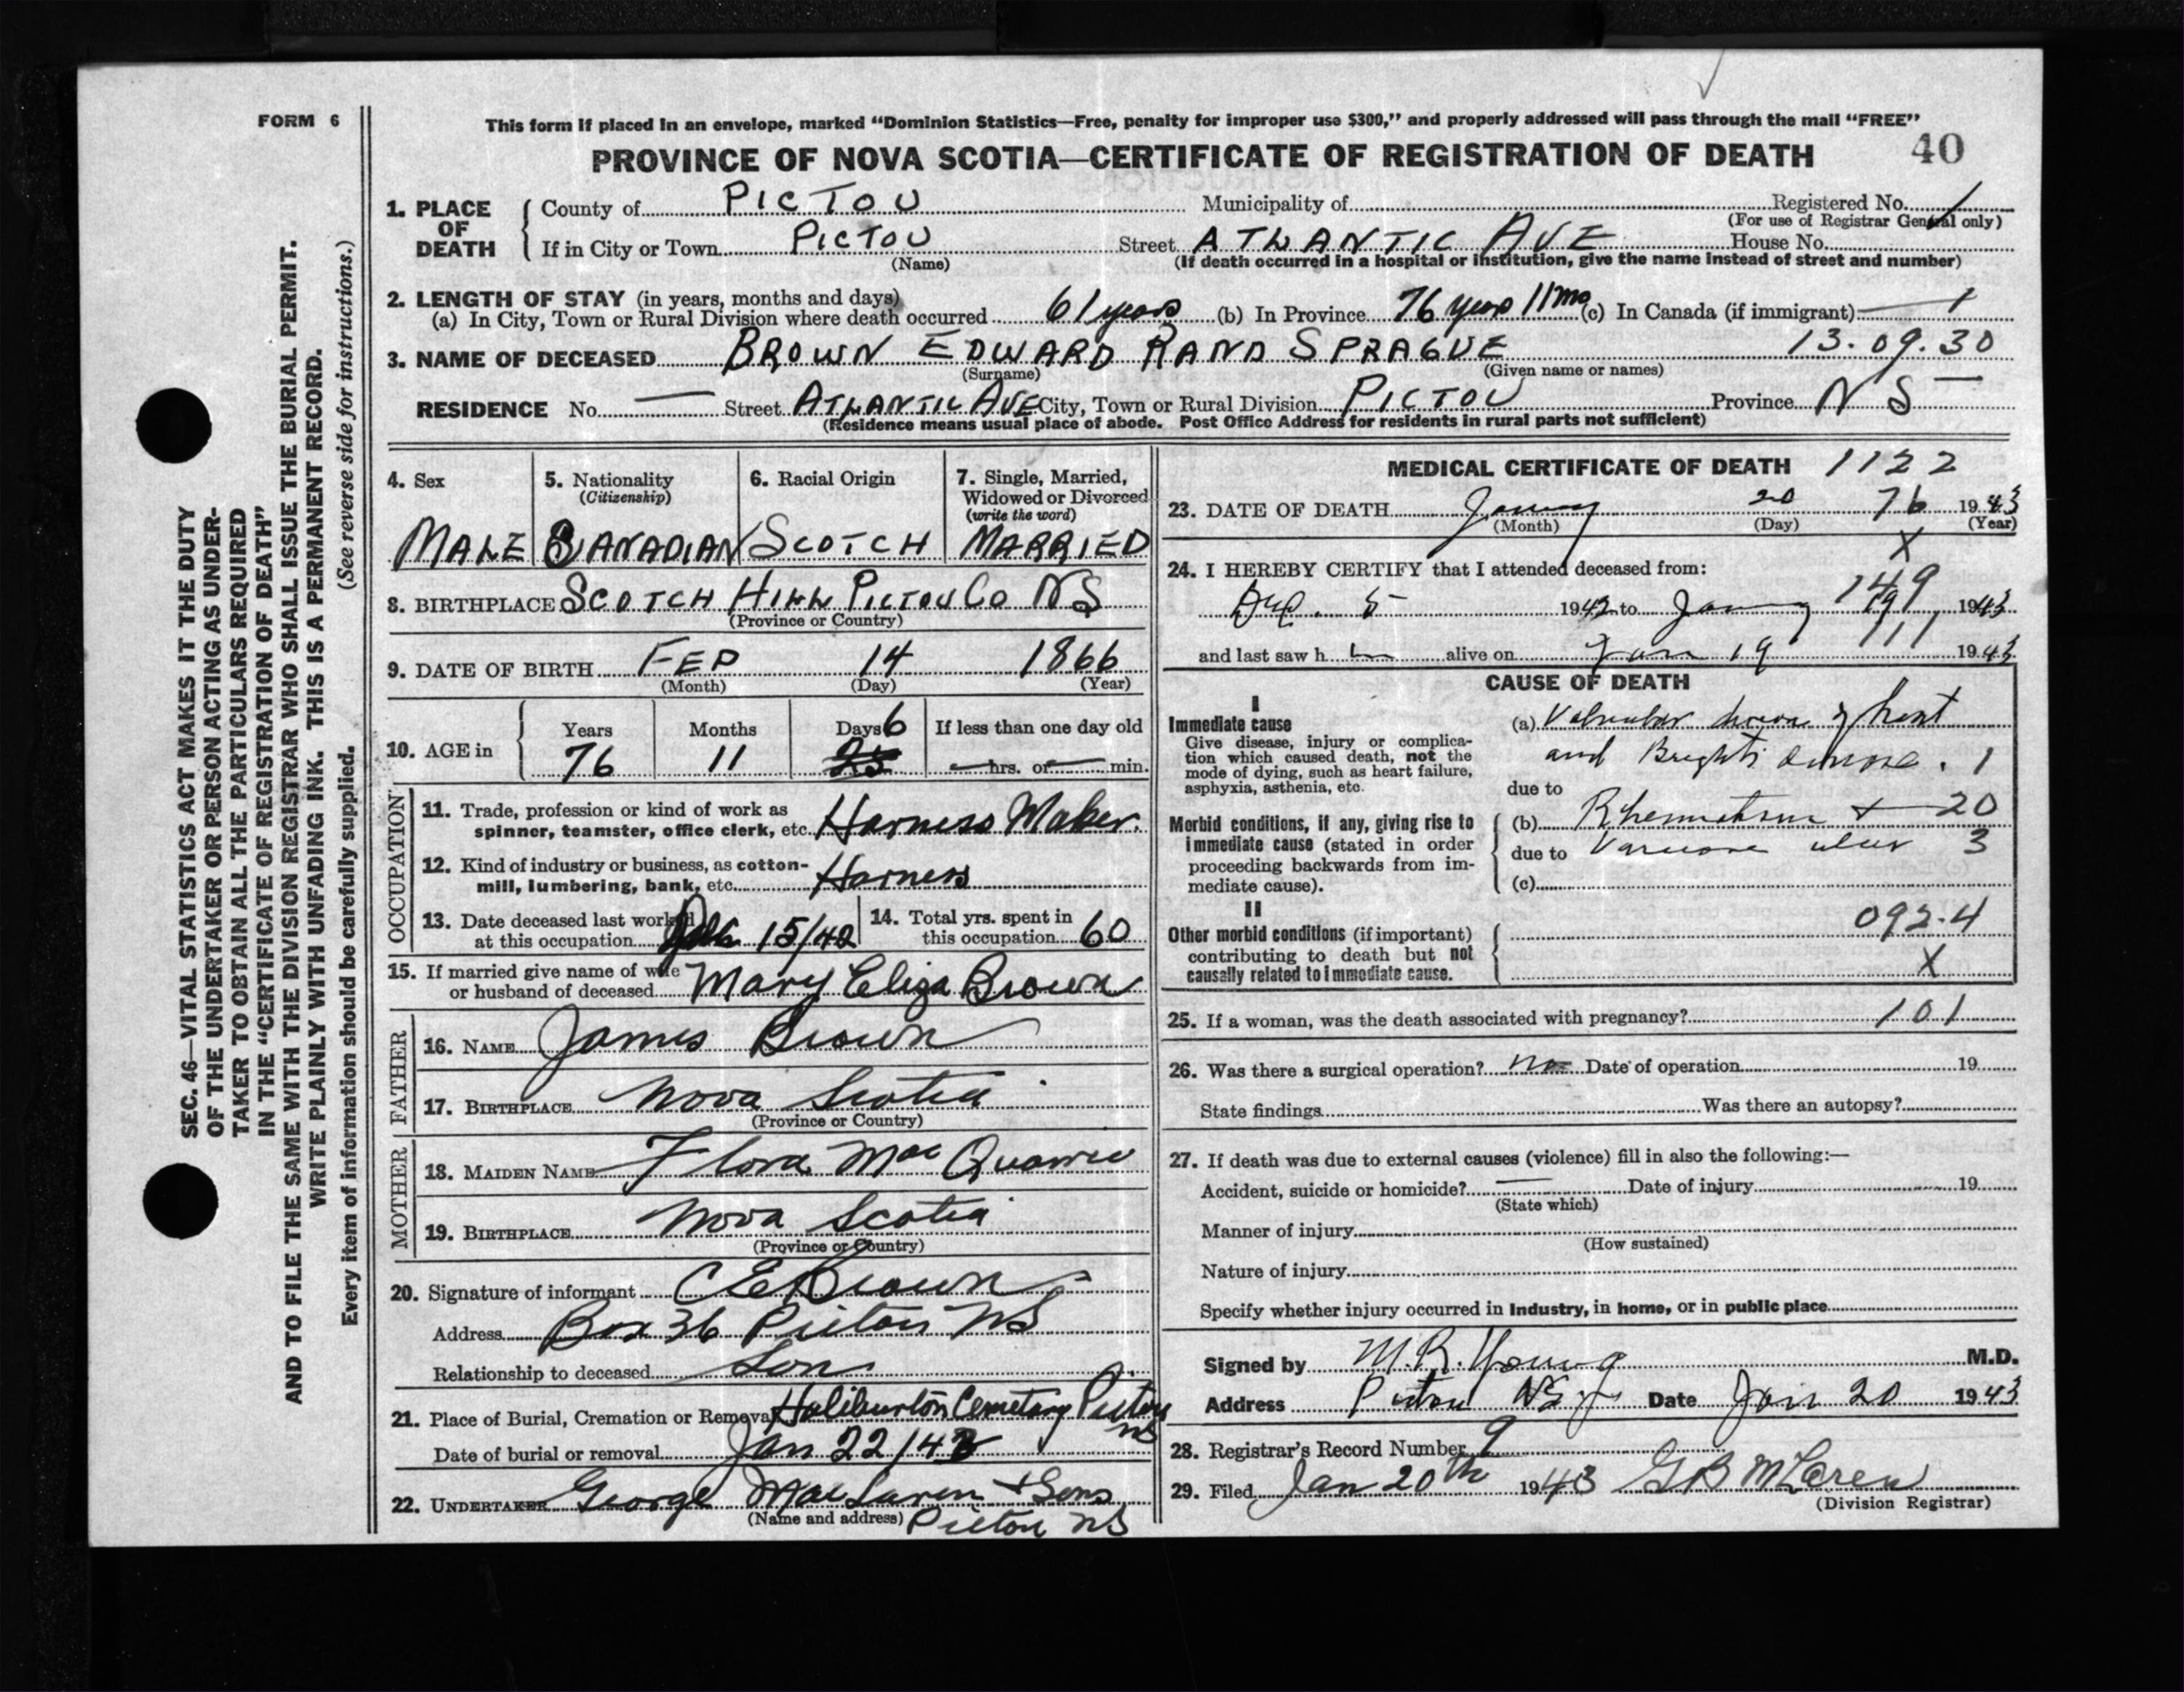 FORM 6
This form if placed in an envelope, marked “Dominion Statistics—Free, penalty for improper use $300,” and properly addressed will pass through the mail “FREE”
PROVINCE OF NOVA SCOTIA—CERTIFICATE OF REGISTRATION OF DEATH 40
1. PLACE OF DEATH
County of PICTOU Municipality of Registered No. 1
(For use of Registrar General only)
If in City or Town PICTOU Street ATLANTIC AVE House No.
(Name) (If death occurred in a hospital or institution, give the name instead of street and number)
2. LENGTH OF STAY (in years, months and days)
(a) In City, Town or Rural Division where death occurred 61 years (b) In Province 76 years 11 mo (c) In Canada (if immigrant) — 1
3. NAME OF DECEASED BROWN EDWARD RAND SPRAGUE 13.09.30
(Surname) (Given name or names)
RESIDENCE No. — Street ATLANTIC AVE City, Town or Rural Division PICTOU Province N S —
(Residence means usual place of abode. Post Office Address for residents in rural parts not sufficient)
4. Sex
MALE
5. Nationality
(Citizenship)
CANADIAN
6. Racial Origin
SCOTCH
7. Single, Married,
Widowed or Divorced
(write the word)
MARRIED
8. BIRTHPLACE SCOTCH HILL PICTOU CO NS
(Province or Country)
9. DATE OF BIRTH FEB 14 1866
(Month) (Day) (Year)
10. AGE in
Years Months Days 6 If less than one day old
76 11 25 — hrs. or — min.
OCCUPATION
11. Trade, profession or kind of work as
spinner, teamster, office clerk, etc. Harness Maker.
12. Kind of industry or business, as cotton-
mill, lumbering, bank, etc. Harness
13. Date deceased last worked
at this occupation 15/42
14. Total yrs. spent in
this occupation 60
15. If married give name of wife
or husband of deceased Mary Eliza Brown
FATHER
16. NAME James Brown
17. BIRTHPLACE Nova Scotia
(Province or Country)
MOTHER
18. MAIDEN NAME Flora MacQuarrie
19. BIRTHPLACE Nova Scotia
(Province or Country)
20. Signature of informant C E Brown
Address Box 36 Pictou NS
Relationship to deceased Son
21. Place of Burial, Cremation or Removal Haliburton Cemetary Pictou NS
Date of burial or removal Jan 22/43
22. UNDERTAKER George MacLaren + Sons
(Name and address) Pictou NS
MEDICAL CERTIFICATE OF DEATH 1122
23. DATE OF DEATH January 20 76 1943
(Month) (Day) (Year)
X
24. I HEREBY CERTIFY that I attended deceased from:
149
Dec. 5 1942 to January 19, 1943
111
and last saw h im alive on Jan 19 1943
CAUSE OF DEATH
I
Immediate cause
Give disease, injury or complica-
tion which caused death, not the
mode of dying, such as heart failure,
asphyxia, asthenia, etc.
(a) Valvular disease of heart
and Brights disease. 1
due to
Morbid conditions, if any, giving rise to
immediate cause (stated in order
proceeding backwards from im-
mediate cause).
(b) Rheumatism + 20
due to Varicose ulcer 3
(c)
II
Other morbid conditions (if important)
contributing to death but not
causally related to immediate cause.
092.4
X
25. If a woman, was the death associated with pregnancy? 101
26. Was there a surgical operation? no Date of operation 19
State findings Was there an autopsy?
27. If death was due to external causes (violence) fill in also the following:—
Accident, suicide or homicide? — Date of injury 19
(State which)
Manner of injury
(How sustained)
Nature of injury
Specify whether injury occurred in Industry, in home, or in public place
Signed by M.R. Young M.D.
Address Pictou NS Date Jan 20 1943
28. Registrar's Record Number 9
29. Filed Jan 20th 1943 G B McLaren
(Division Registrar)
SEC. 46—VITAL STATISTICS ACT MAKES IT THE DUTY
OF THE UNDERTAKER OR PERSON ACTING AS UNDER-
TAKER TO OBTAIN ALL THE PARTICULARS REQUIRED
IN THE “CERTIFICATE OF REGISTRATION OF DEATH”
AND TO FILE THE SAME WITH THE DIVISION REGISTRAR WHO SHALL ISSUE THE BURIAL PERMIT.
WRITE PLAINLY WITH UNFADING INK. THIS IS A PERMANENT RECORD.
Every item of information should be carefully supplied. (See reverse side for instructions.)